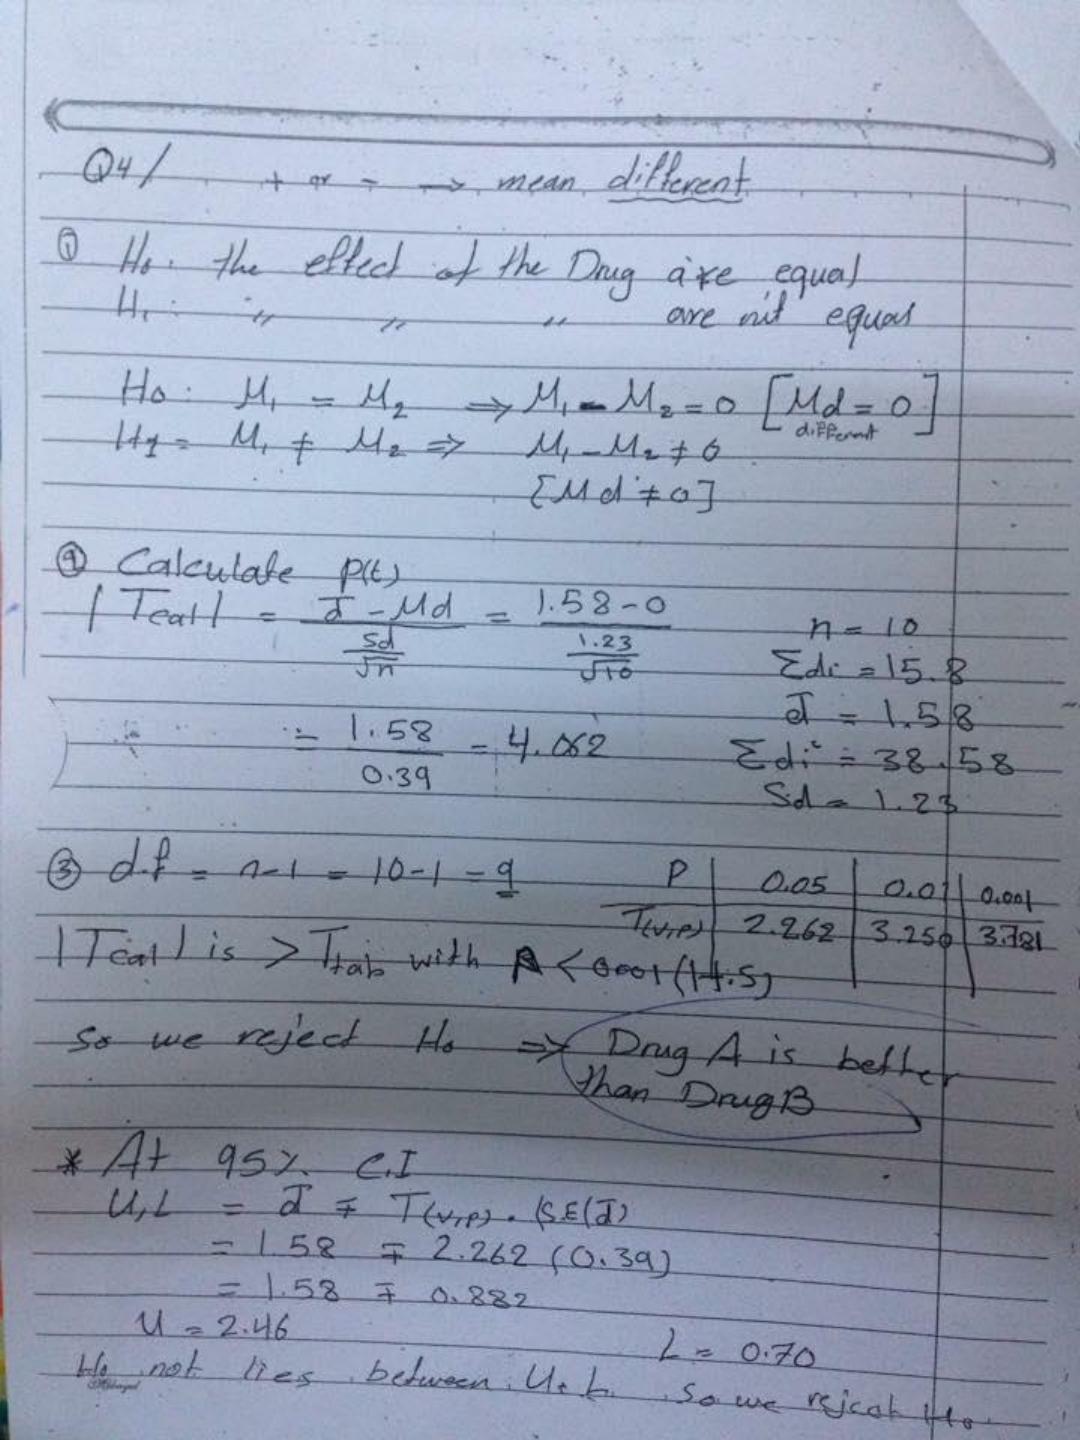 Q4/ + or - → mean different
① Ho: the effect of the Drug are equal
H₁: 〃 〃 〃 are not equal
Ho: M₁ = M₂ ⇒ M₁ - M₂ = 0 [Md = 0]
different
H1 = M₁ ≠ M₂ ⇒ M₁ - M₂ ≠ 0
[Md ≠ 0]
② Calculate p(t)
|Tcal| = (d̄ - Md) / (Sd/√n) = (1.58 - 0) / (1.23/√10)
= 1.58 / 0.39 = 4.062
n = 10
Σdi = 15.8
d̄ = 1.58
Σdi² = 38.58
Sd = 1.23
③ d.f = n-1 = 10-1 = 9
P | 0.05 | 0.01 | 0.001
T(v,p) | 2.262 | 3.250 | 3.781
|Tcal| is > Ttab with P < 0.001 (H.S)
so we reject Ho ⇒ Drug A is better
than Drug B
* At 95% C.I
U,L = d̄ ∓ T(v,p) . (S.E(d̄)
= 1.58 ∓ 2.262 (0.39)
= 1.58 ∓ 0.882
U = 2.46 L = 0.70
Ho not lies between U & L so we reject Ho